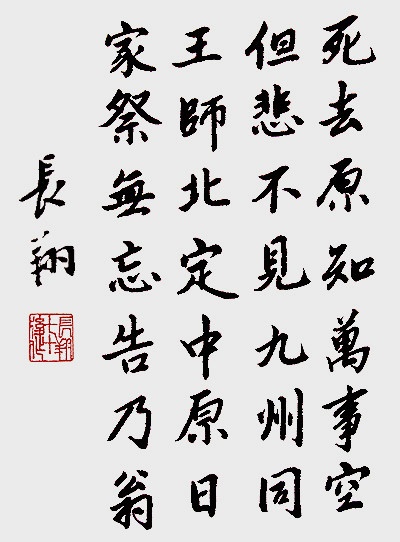 死去原知萬事空
但悲不見九州同
王師北定中原日
家祭無忘告乃翁
長翔